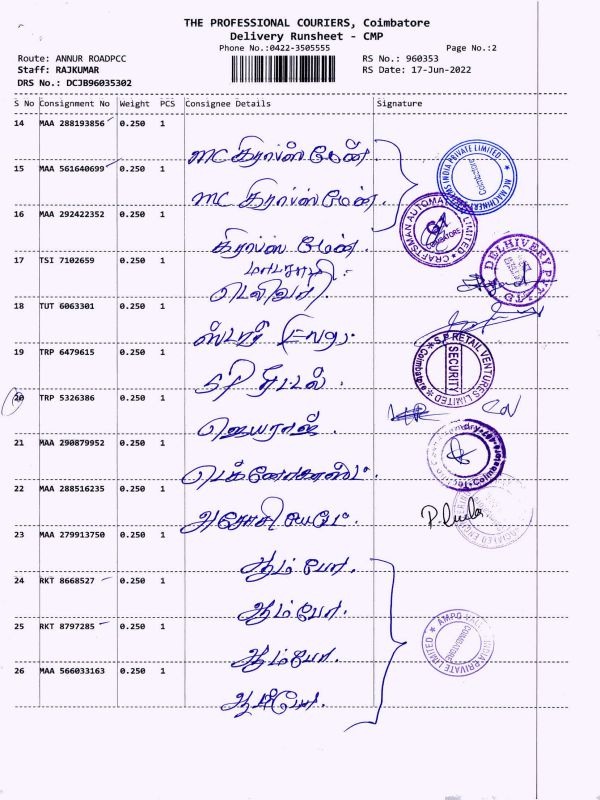 THE PROFESSIONAL COURIERS, Coimbatore
Delivery Runsheet - CMP
Phone No.:0422-3505555 Page No.:2
Route: ANNUR ROADPCC RS No.: 960353
Staff: RAJKUMAR RS Date: 17-Jun-2022
DRS No.: DCJB96035302
S No Consignment No Weight PCS Consignee Details Signature
14 MAA 288193856 0.250 1
MC கிராப்ஸ் மேன்
15 MAA 561640699 0.250 1
MC கிராப்ஸ் மேன்.
16 MAA 292422352 0.250 1
கிராப்ஸ் மேன்.
17 TSI 7102659 0.250 1
டெலிவரி.
18 TUT 6063301 0.250 1
ஸ்டார்
19 TRP 6479615 0.250 1
SP ரீடல்.
20 TRP 5326386 0.250 1
ஜெயராஜ்.
21 MAA 290879952 0.250 1
22 MAA 288516235 0.250 1
அசோசியேட்.
23 MAA 279913750 0.250 1
ஆம்போ.
24 RKT 8668527 0.250 1
ஆம்போ.
25 RKT 8797285 0.250 1
ஆம்போ.
26 MAA 566033163 0.250 1
ஆம்போ.
CRAFTSMAN AUTOMATION LIMITED
COIMBATORE
DELHIVERY PVT LTD
S.P. RETAIL VENTURES LIMITED
SECURITY